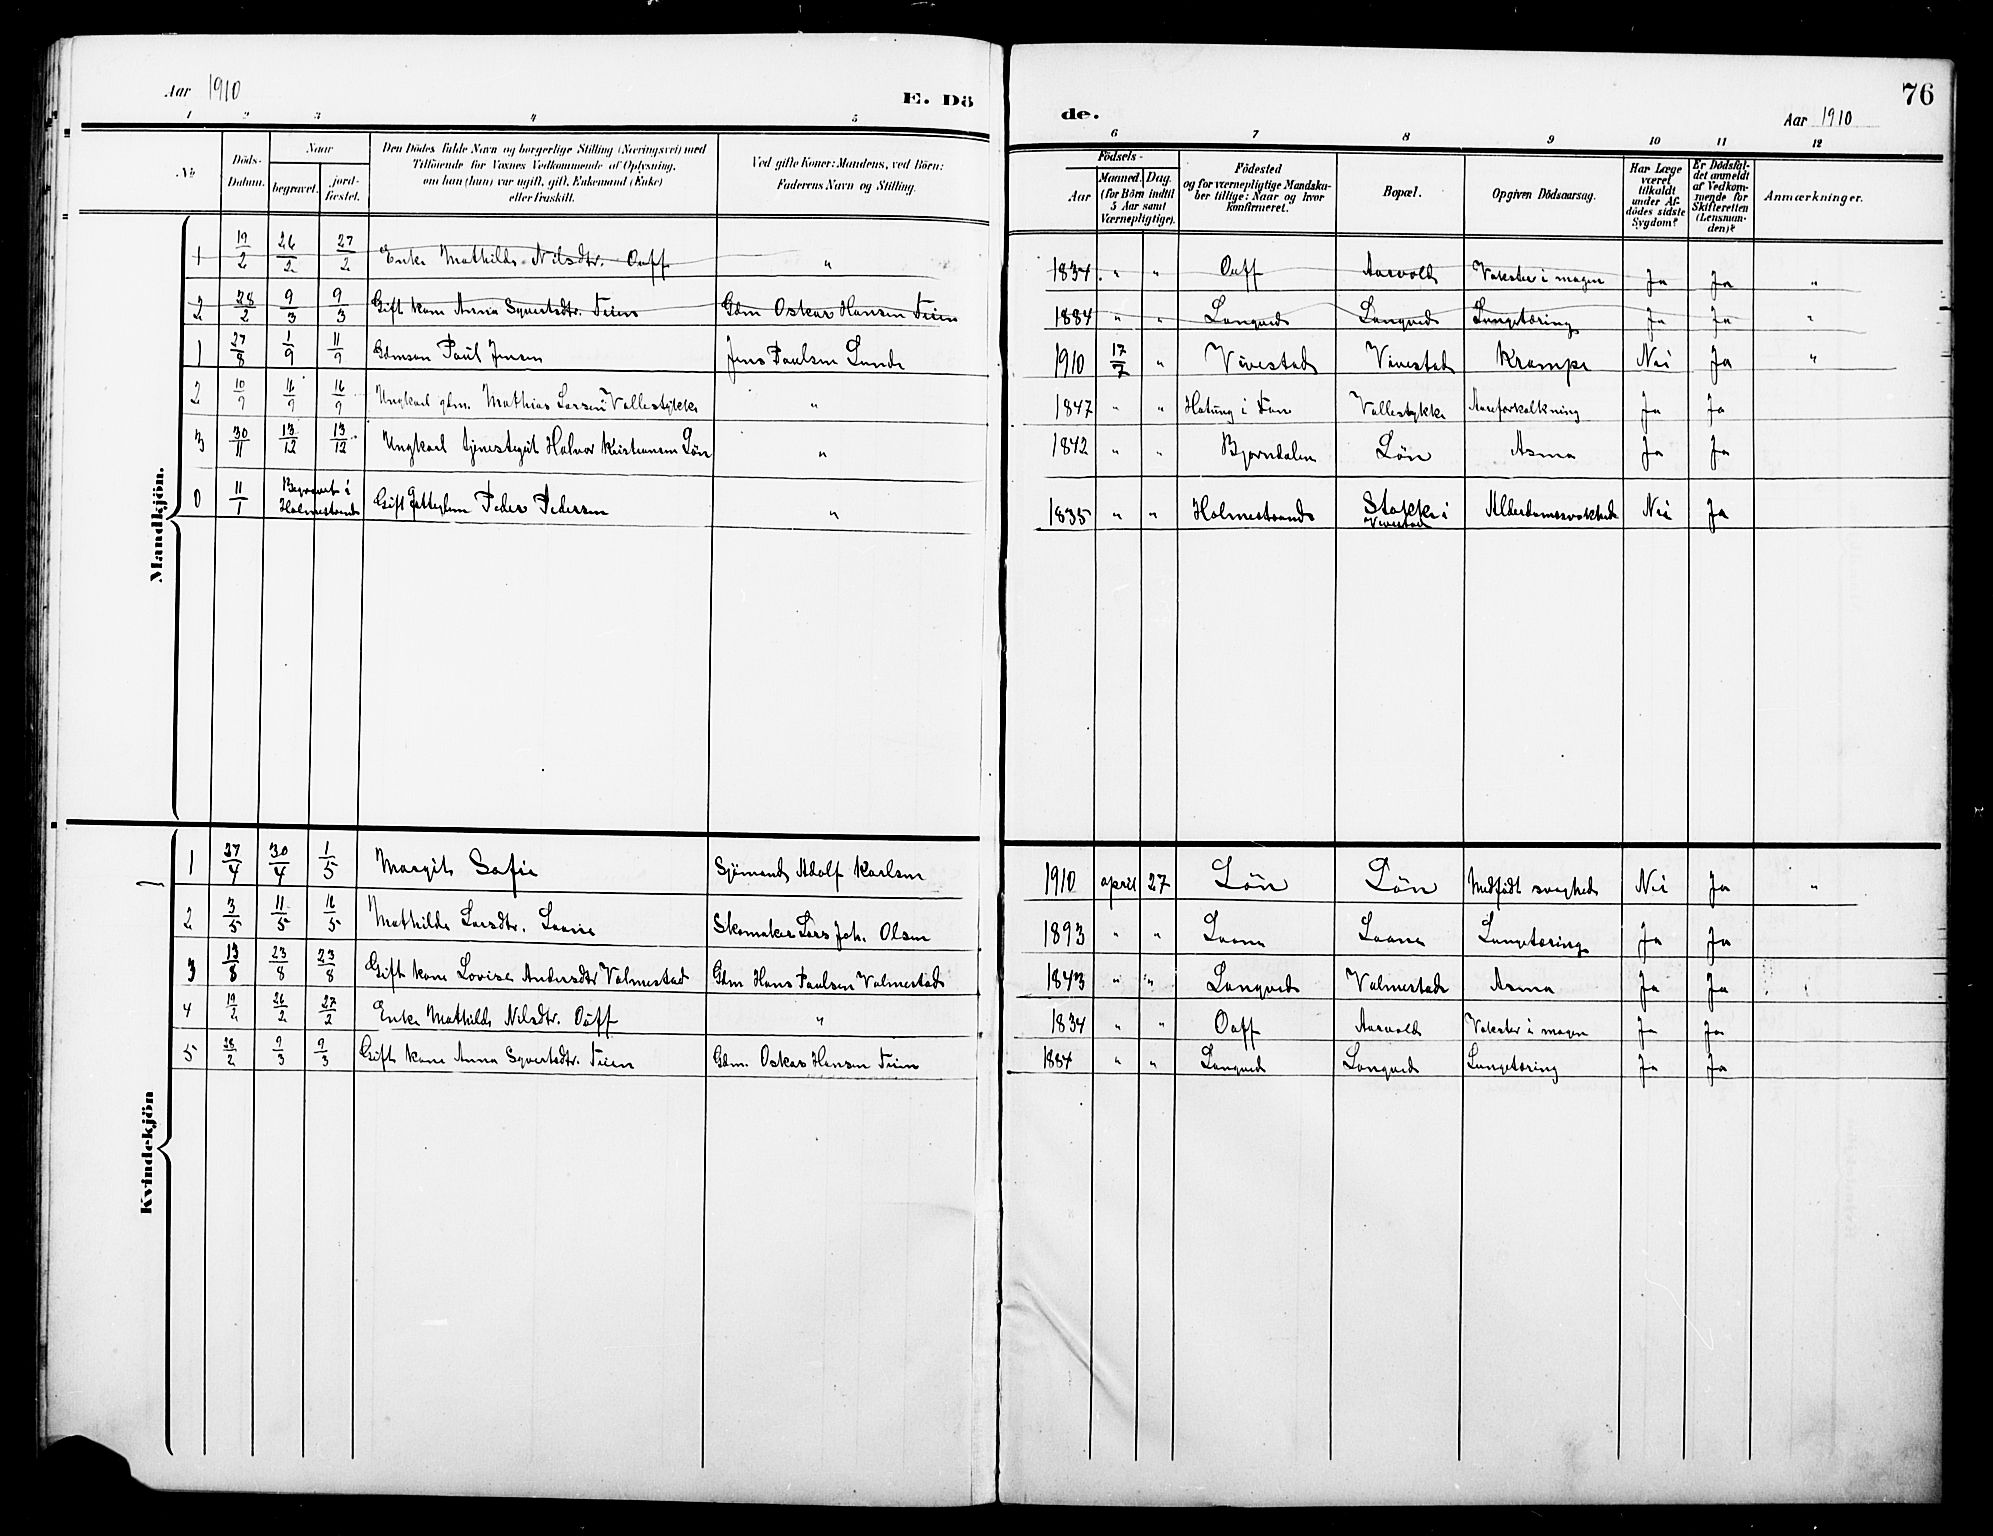 Aar 1910
E. Dö
de.
76
Aar 1910
1 2 3 4 5 6 7 8 9 10 11 12
№
Döds-Datum.
Naar
begravet.
jord-fæstet.
Den Dödes fulde Navn og borgerlige Stilling (Næringsvei) med
Tilföiende for Voxnes Vedkommende af Oplysning,
om han (hun) var ugift, gift, Enkemand (Enke)
eller fraskilt.
Ved gifte Koner: Mandens, ved Börn:
Faderens Navn og Stilling.
Födsels-
Aar
Maaned. Dag.
(for Börn indtil
5 Aar samt
Værnepligtige).
Födested
og for værnepligtige Mandska-
ber tillige: Naar og hvor
konfirmeret.
Bopæl.
Opgiven Dödsaarsag.
Har Læge
været
tilkaldt
under Af-
dödes sidste
Sygdom?
Er Dödsfal-
det anmeldt
af Vedkom-
mende for
Skifteretten
(Lensman-
den)?
Anmærkninger.
Mandkjön.
1 19/2 26/2 27/2 Enke Mathilde Nilsdtr. Oaff " 1834 " " Oaff Aarvold Vækster i magen Ja Ja "
2 28/2 9/3 9/3 Gift kone Anna Syvertsdtr. Feien Gdm Oskar Hansen Feien 1884 " " Langved Langved Lungetæring Ja Ja "
1 27/8 1/9 11/9 Gdmsøn Paul Jensen Jens Paulsen Lunde 1910 17/7 " Vivestad Vivestad Krampe Nei Ja "
2 10/9 16/9 16/9 Ungkarl gdm. Mathias Larsen Vallestykke " 1847 " " i Vallestykke Aareforkalkning Ja Ja
3 30/11 13/12 13/12 Ungkarl tjenestegut Halvor Kristiansen Løn " 1842 " " Bjørndalen Løn Asma Ja Ja
0 11/1 Begravet i
Holmestrand Gift Peder Pedersen " 1835 " " Holmestrand Stokke i
Vivestad Alderdomssvakhed Nei Ja
Kvindekjön
1 27/4 30/4 1/5 Margit Sofie Sjømand Adolf Karlsen 1910 april 27 Løn Løn Medfødt svaghed Nei Ja "
2 3/5 11/5 16/5 Mathilde Larsdtr. Laane Skomaker Lars Joh. Olsen 1893 " " Laane Laane Lungetæring Ja Ja
3 13/8 23/8 23/8 Gift kone Lovise Andersdtr Valmestad Gdm Hans Paulsen Valmestad 1843 " " Langved Valmestad Asma Ja Ja
4 19/2 26/2 27/2 Enke Mathilde Nilsdtr. Oaff " 1834 " " Oaff Aarvold Vækster i magen Ja Ja
5 28/2 9/3 9/3 Gift kone Anna Syvertsdtr. Feien Gdm. Oskar Hansen Feien 1884 " " Langved Langved Lungetæring Ja Ja